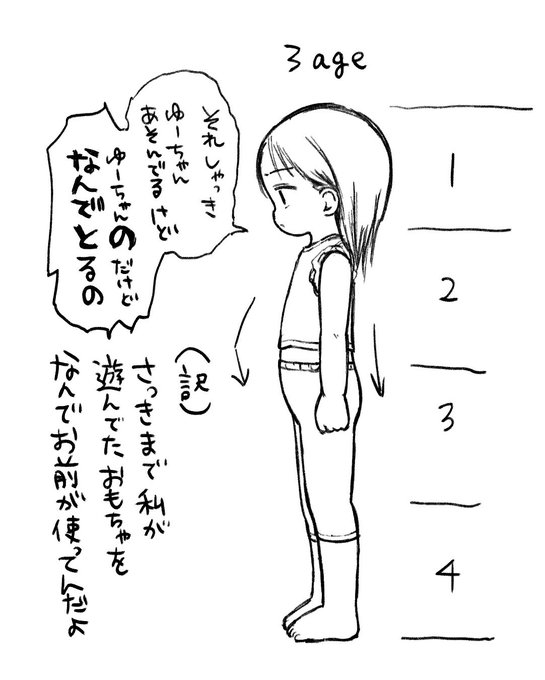 3 age
それしゃっき
ゆーちゃん
あそんでるけど
ゆーちゃんのだけど
なんでとるの
(訳)
さっきまで私が
遊んでたおもちゃを
なんでお前が使ってんだよ
1
2
3
4